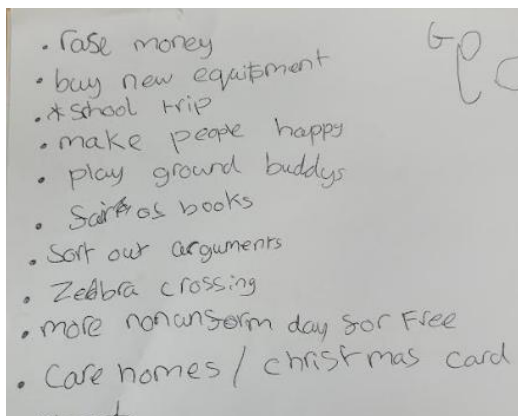 • rase money
• buy new equitpment
• * school trip
• make people happy
• play ground buddys
• books
• Sort out arguments
• Zeebra crossing
• more nonunsorm day sor Free
• Care homes / christmas card